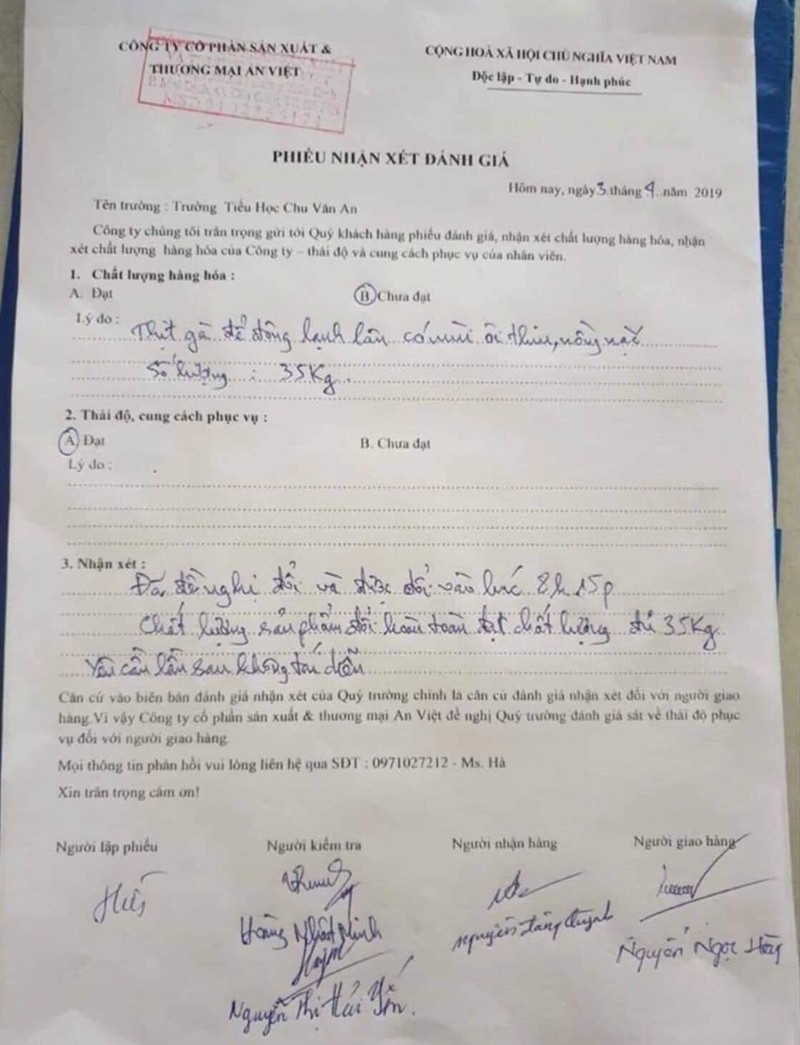 CÔNG TY CỔ PHẦN SẢN XUẤT &
THƯƠNG MẠI AN VIỆT
CỘNG HOÀ XÃ HỘI CHỦ NGHĨA VIỆT NAM
Độc lập - Tự do - Hạnh phúc
PHIẾU NHẬN XÉT ĐÁNH GIÁ
Hôm nay, ngày 3 tháng 4 năm 2019
Tên trường : Trường Tiểu Học Chu Văn An
Công ty chúng tôi trân trọng gửi tới Quý khách hàng phiếu đánh giá, nhận xét chất lượng hàng hóa, nhận
xét chất lượng hàng hóa của Công ty – thái độ và cung cách phục vụ của nhân viên.
1. Chất lượng hàng hóa :
A. Đạt
B. Chưa đạt
Lý do : Thịt gà để đông lạnh lâu có mùi ôi thiu, nồng nặc
Số lượng : 35Kg.
2. Thái độ, cung cách phục vụ :
A. Đạt
B. Chưa đạt
Lý do :
3. Nhận xét :
Đã đề nghị đổi và được đổi vào lúc 8h15p
Chất lượng sản phẩm đổi hoàn toàn đạt chất lượng đủ 35Kg
Yêu cầu lần sau không tái diễn
Căn cứ vào biên bản đánh giá nhận xét của Quý trường chính là căn cứ đánh giá nhận xét đối với người giao
hàng.Vì vậy Công ty cổ phần sản xuất & thương mại An Việt đề nghị Quý trường đánh giá sát về thái độ phục
vụ đối với người giao hàng.
Mọi thông tin phản hồi vui lòng liên hệ qua SĐT : 0971027212 - Ms. Hà
Xin trân trọng cảm ơn!
Người lập phiếu
Người kiểm tra
Người nhận hàng
Người giao hàng
Hoàng Nhật Minh
Nguyễn Đăng Quỳnh
Nguyễn Ngọc
Nguyễn Thị Hải Yến.